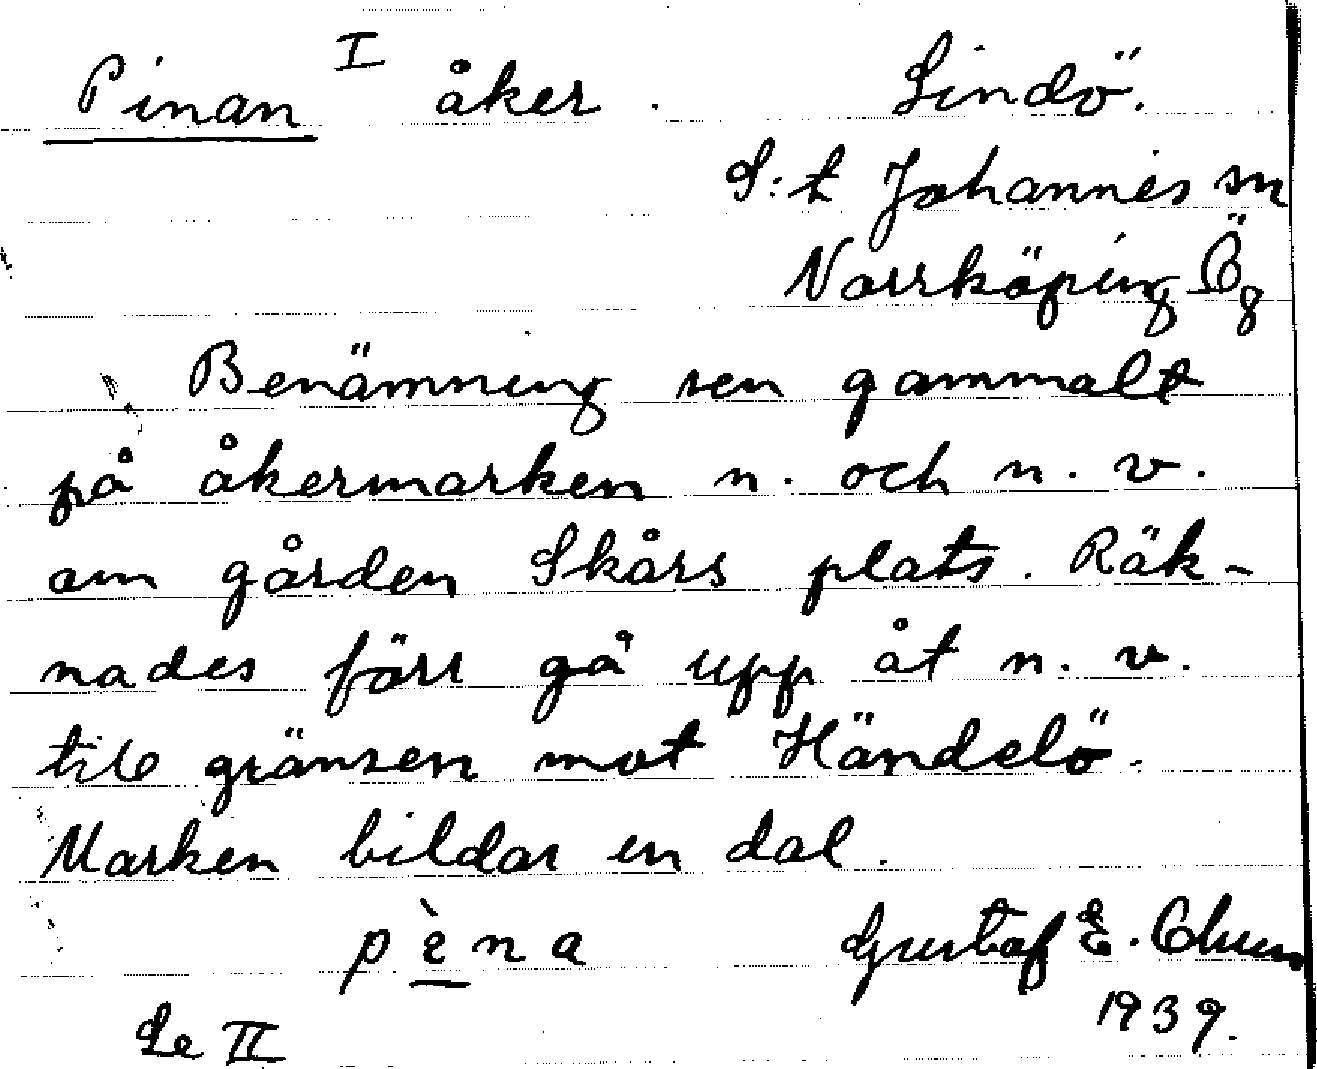 Pinan I åker. Lindö.
S:t Johannes sn
Norrköping Ög
Benämning sen gammalt
på åkermarken n. och n. v.
om gården Skårs plats. Räk-
nades förr gå upp åt n. v.
till gränsen mot Händelö.
Marken bildar en dal.
Gustaf E.
Se II 1939.